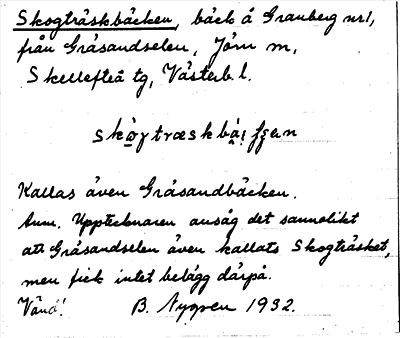 Skogträskbäcken, bäck å Granberg nr 1,
från Gråsandselen, Jörn sn,
Skellefteå tg, Västerb. l.
Kallas även Gråsandbäcken.
Anm. Upptecknaren ansåg det sannolikt
att Gråsandselen även kallats Skogträsket,
men fick intet belägg därpå.
Vänd! B. Nygren 1932.